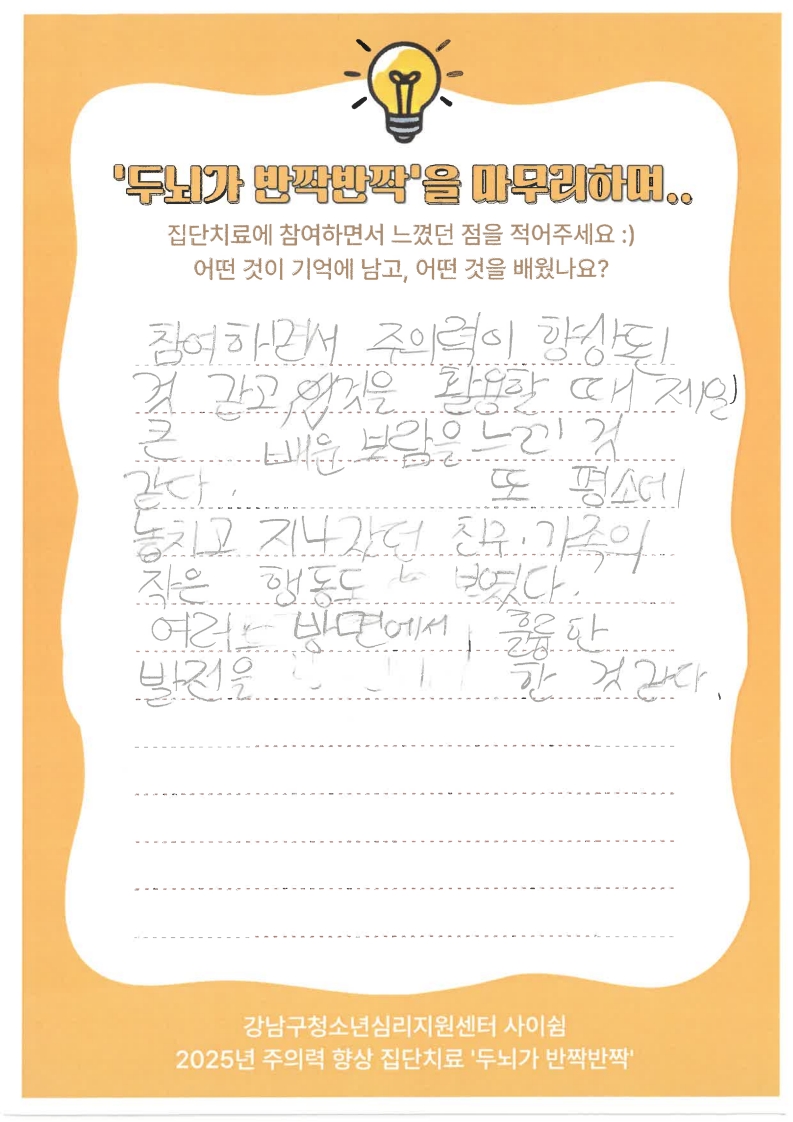 '두뇌가 반짝반짝'을 마무리하며..
집단치료에 참여하면서 느꼈던 점을 적어주세요 :)
어떤 것이 기억에 남고, 어떤 것을 배웠나요?
참여하면서 주의력이 향상된
것 같고, 것을 활용할 때 제일
큰 배운 보람을 느낀 것
같다. 또 평소에
놓치고 지나갔던 친구·가족의
작은 행동도 보였다.
여러 방면에서 훌륭한
발전을 한 것 같다.
강남구청소년심리지원센터 사이쉼
2025년 주의력 향상 집단치료 '두뇌가 반짝반짝'